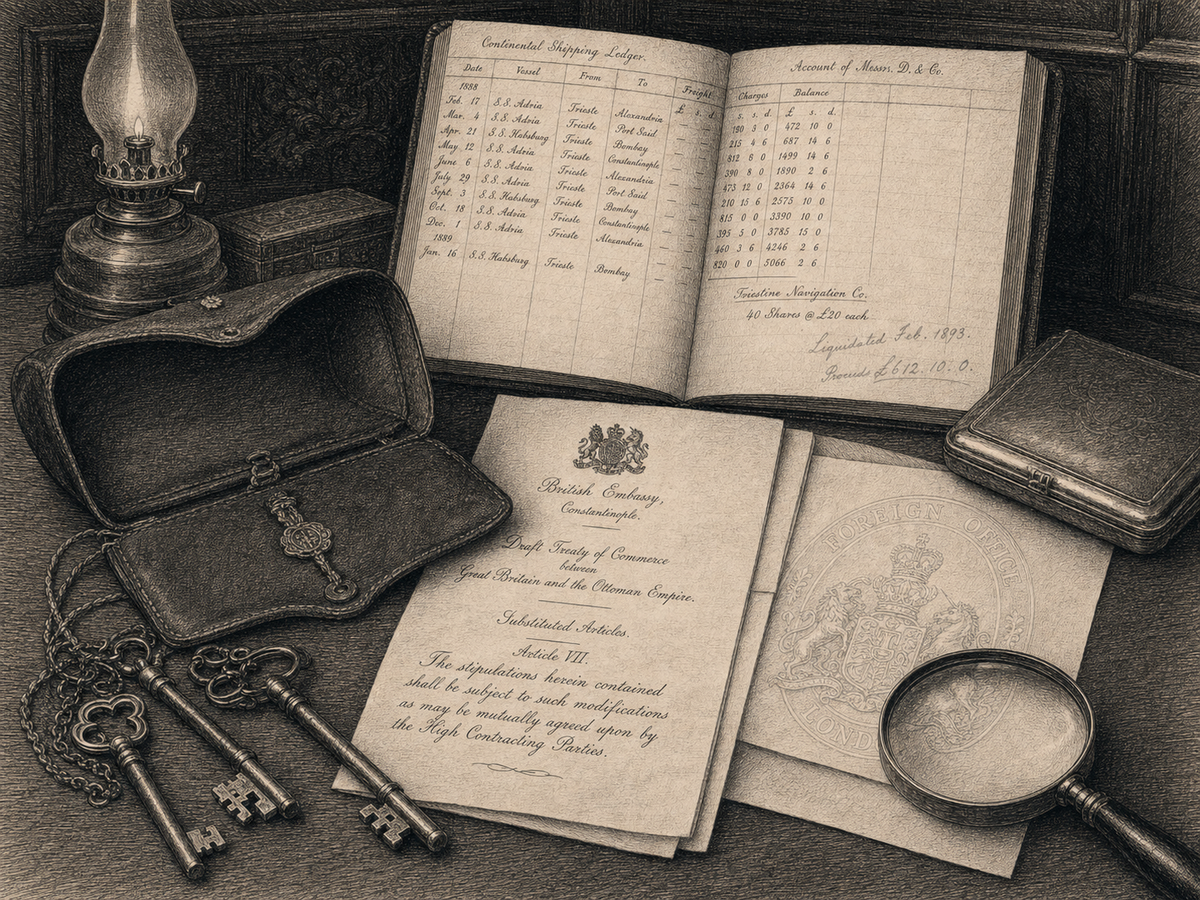 Continental Shipping Ledger.
Date Vessel From To Freight
1888 £ s. d.
Feb. 17 S.S. Adria Trieste Alexandria — — —
Mar. 4 S.S. Adria Trieste Port Said — — —
Apr. 21 S.S. Habsburg Trieste Bombay — — —
May 12 S.S. Adria Trieste Constantinople — — —
June 6 S.S. Adria Trieste Alexandria — — —
July 29 S.S. Adria Trieste Port Said — — —
Sept. 3 S.S. Habsburg Trieste Bombay — — —
Oct. 18 S.S. Adria Trieste Constantinople — — —
Dec. 1 S.S. Adria Trieste Alexandria — — —
1889
Jan. 16 S.S. Habsburg Trieste Bombay — — —
Account of Messrs. D. & Co.
Charges Balance
s. s. d. £ s. d.
180 3 0 472 10 0
215 4 6 687 14 6
812 8 0 1499 14 6
390 8 0 1890 2 6
473 12 0 2364 14 6
210 15 6 2575 10 0
815 0 0 3390 10 0
395 5 0 3785 15 0
460 3 6 4246 2 6
820 0 0 5066 2 6
Triestine Navigation Co.
40 Shares @ £20 each
Liquidated Feb. 1893.
Proceeds £612. 10. 0.
British Embassy,
Constantinople.
Draft Treaty of Commerce
between
Great Britain and the Ottoman Empire.
Substituted Articles.
Article VII.
The stipulations herein contained
shall be subject to such modifications
as may be mutually agreed upon by
the High Contracting Parties.
FOREIGN OF